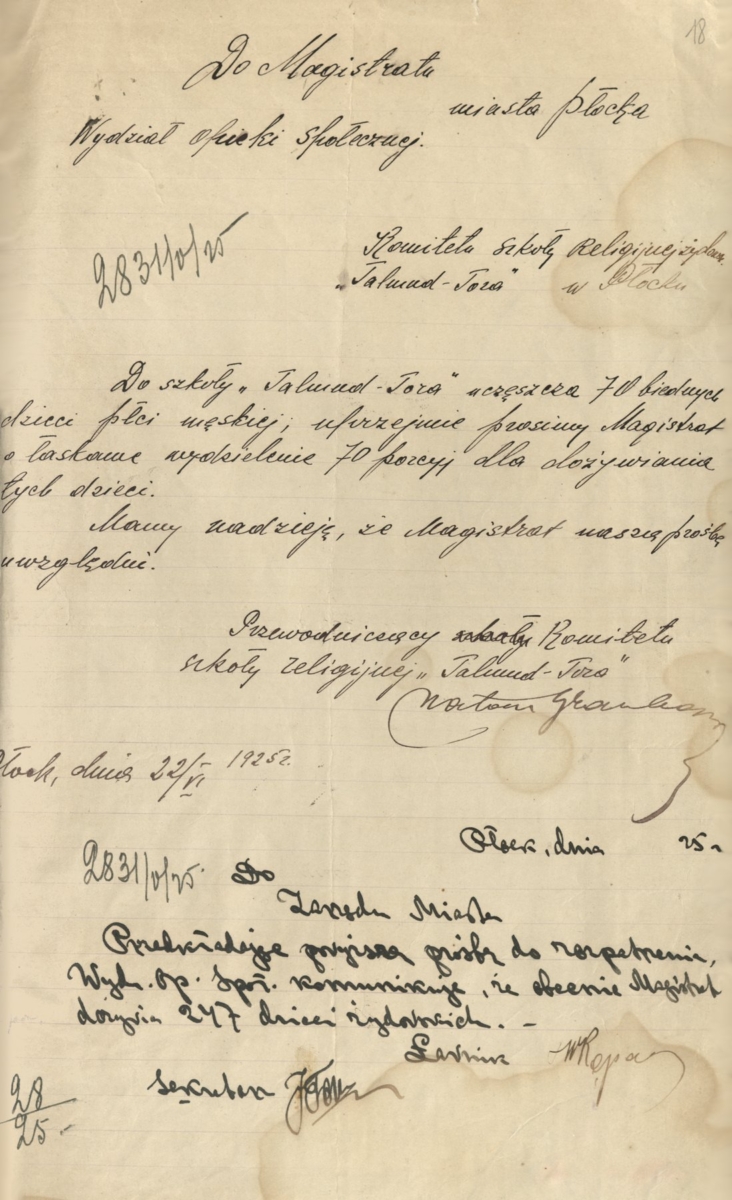 18
Do Magistratu
miasta Płocka
Wydział Opieki Społecznej.
2831/0/25
Komitetu szkoły Religijnej żydow.
„Talmud-Tora" w Płocku
Do szkoły „Talmud-Tora" uczęszcza 70 biednych
dzieci płci męskiej; uprzejmie prosimy Magistrat
o łaskawe wydzielenie 70 porcyj dla dożywiania
tych dzieci.
Mamy nadzieję, że Magistrat naszą prośbę
uwzględni.
Przewodniczący Komitetu
szkoły religijnej „Talmud-Tora"
Natan
Płock, dnia 22/VI 1925 r.
Płock, dnia 25 r.
2831/0/25. Do
Zarządu Miasta
Przedkładając powyższą prośbę do rozpatrzenia,
Wydz. Op. Społ. komunikuje, że obecnie Magistrat
dożywia 247 dzieci żydowskich. –
Ławnik
Sekretarz
28/25.-